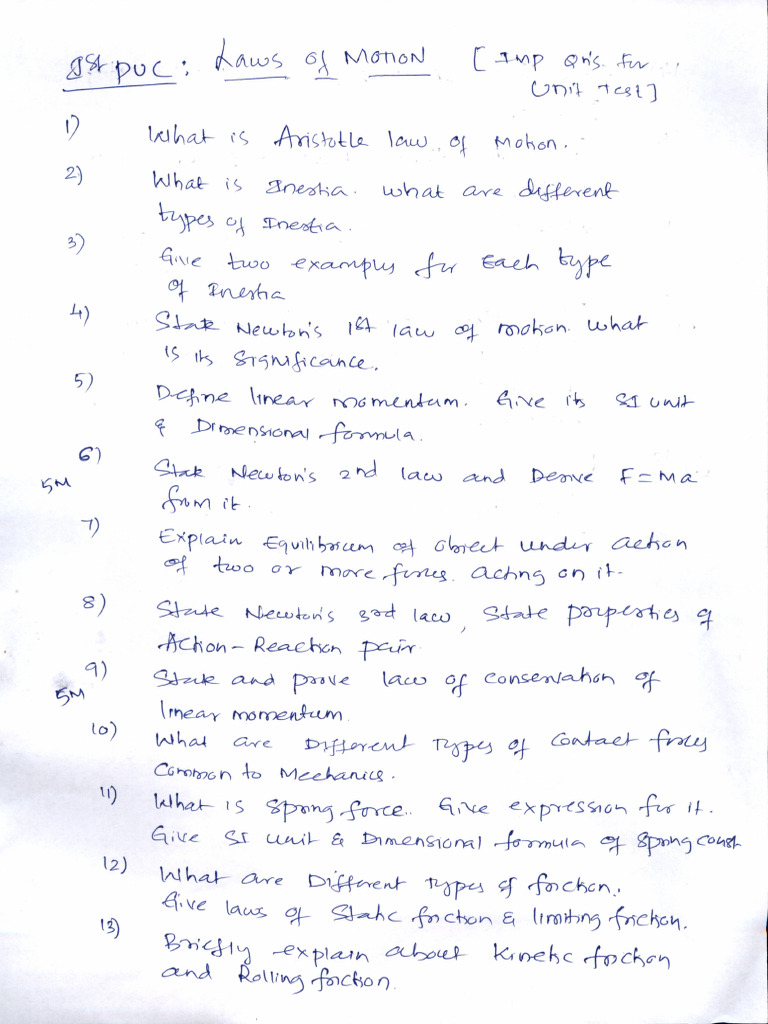 Ist PUC: Laws of Motion [Imp Qn's for
Unit Test]
1) What is Aristotle law of Motion.
2) What is Inertia. what are different
types of Inertia.
3) Give two examples for Each type
of Inertia
4) State Newton's 1st law of motion. what
is its significance.
5) Define linear momentum. Give its SI unit
& Dimensional formula.
6) State Newton's 2nd law and Derive F=Ma
5M
from it.
7) Explain Equilibrium of object under action
of two or more forces. acting on it.
8) State Newton's 3rd law, State properties of
Action-Reaction pair.
9) State and prove law of conservation of
5M
linear momentum.
10) What are Different Types of Contact forces
Common to Mechanics.
11) What is Spring force. Give expression for it.
Give SI unit & Dimensional formula of Spring const
12) What are Different types of friction.
Give laws of Static friction & limiting friction.
13) Briefly explain about Kinetic friction
and Rolling friction.